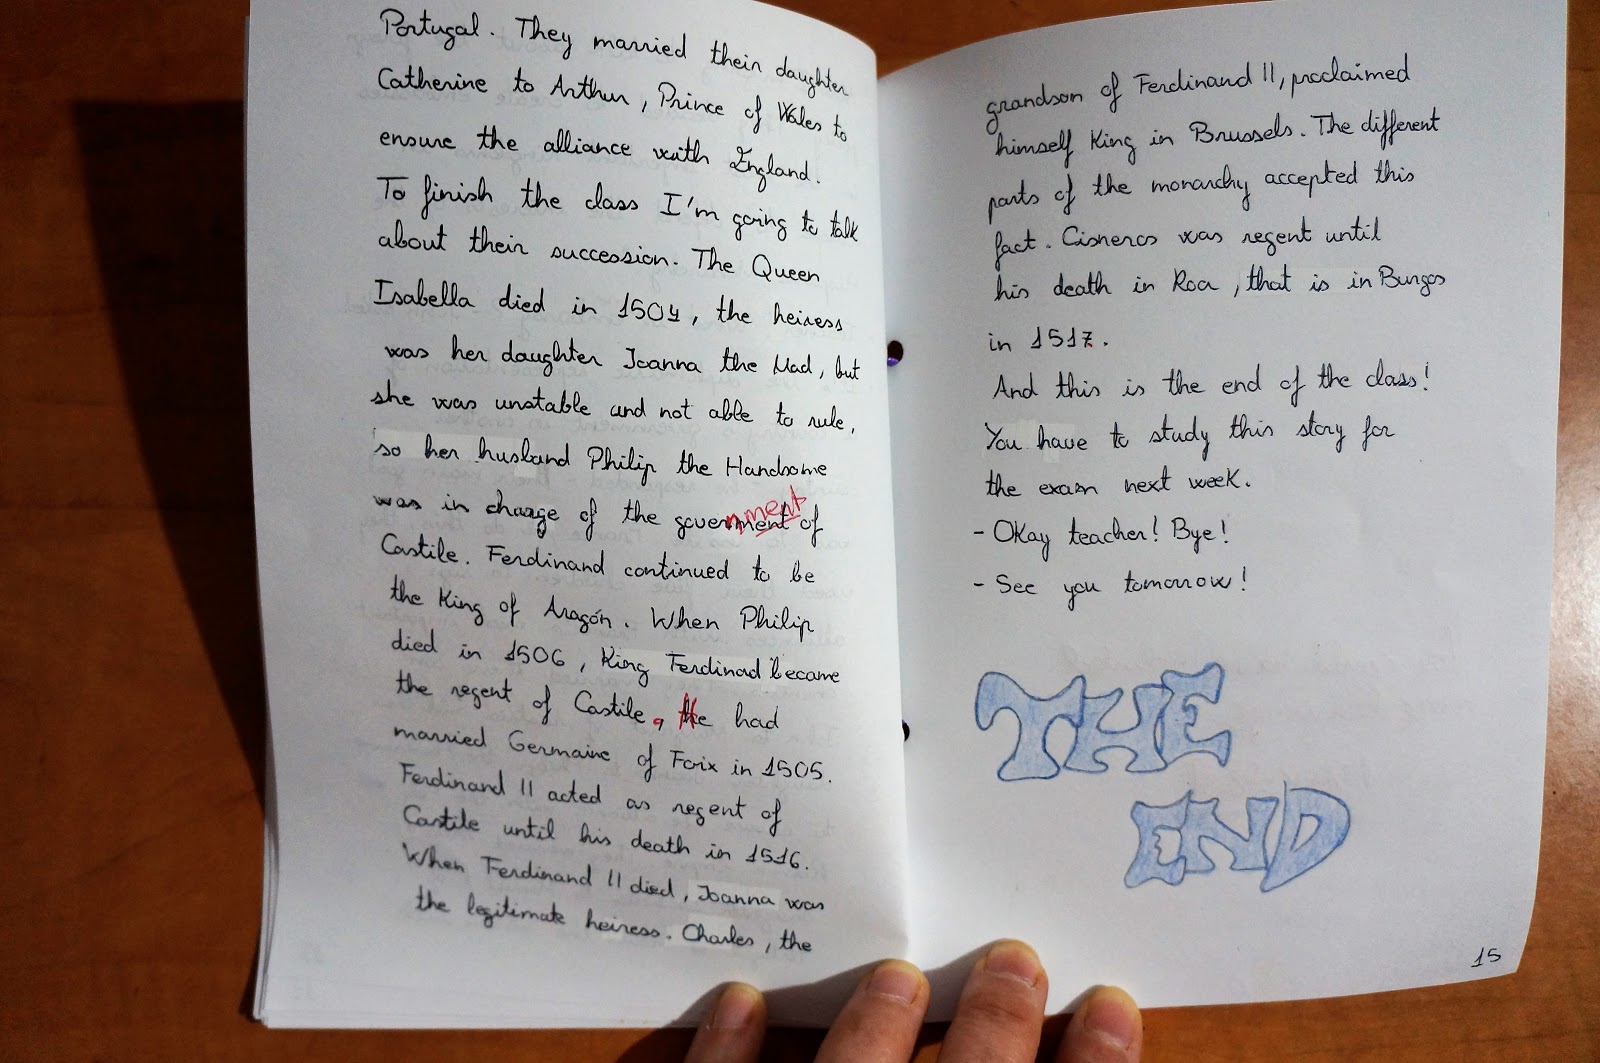 Portugal. They married their daughter
Catherine to Arthur, Prince of Wales to
ensure the alliance with England.
To finish the class I'm going to talk
about their succession. The Queen
Isabella died in 1504, the heiress
was her daughter Joanna the Mad, but
she was unstable and not able to rule,
so her husband Philip the Handsome
was in charge of the government of
Castile. Ferdinand continued to be
the King of Aragón. When Philip
died in 1506, King Ferdinad became
the regent of Castile, He had
married Germaine of Foix in 1505.
Ferdinand II acted as regent of
Castile until his death in 1516.
When Ferdinand II died, Joanna was
the legitimate heiress. Charles, the
grandson of Ferdinand II, proclaimed
himself King in Brussels. The different
parts of the monarchy accepted this
fact. Cisneros was regent until
his death in Roa, that is in Burgos
in 1517.
And this is the end of the class!
You have to study this story for
the exam next week.
- Okay teacher! Bye!
- See you tomorrow!
THE
END
15